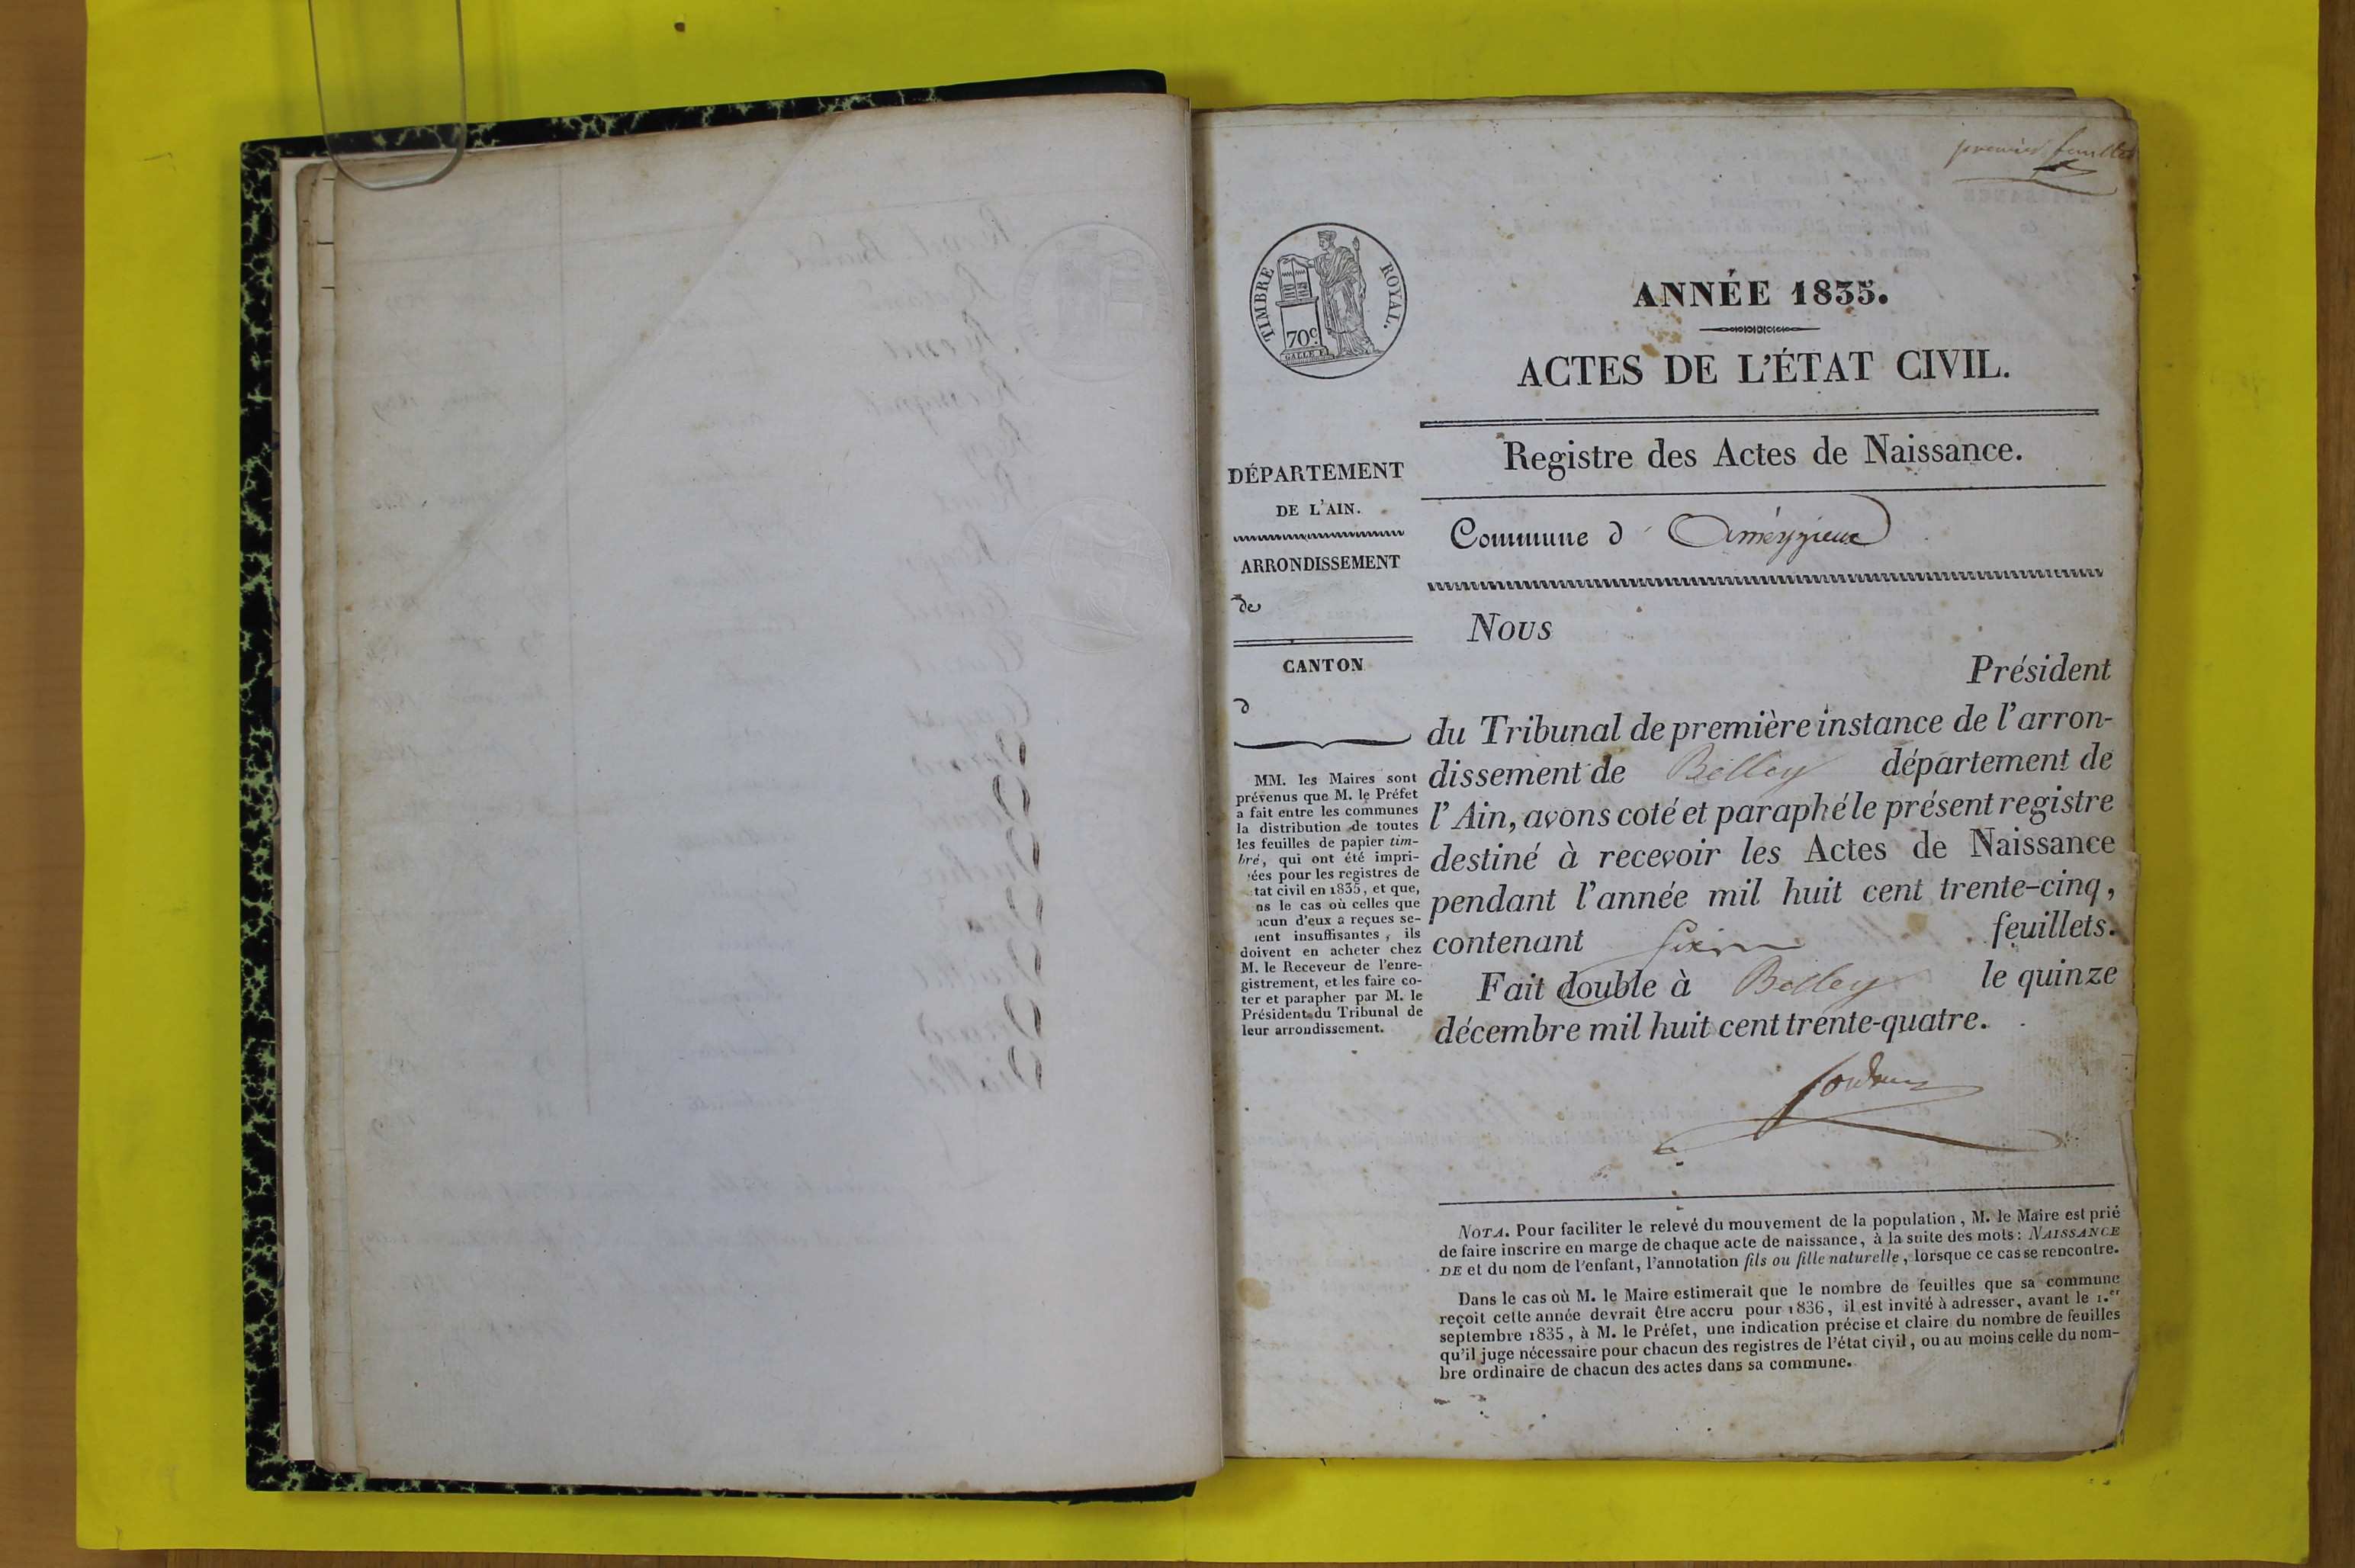 premier feuillet
TIMBRE ROYAL.
70c
GALLE F.
ANNÉE 1835.
ACTES DE L'ÉTAT CIVIL.
Registre des Actes de Naissance.
Commune d' Améyzieux
DÉPARTEMENT
DE L'AIN.
ARRONDISSEMENT
de
CANTON
d
MM. les Maires sont
prévenus que M. le Préfet
a fait entre les communes
la distribution de toutes
les feuilles de papier tim-
bré, qui ont été impri-
ées pour les registres de
tat civil en 1835, et que,
ns le cas où celles que
acun d'eux a reçues se-
ient insuffisantes, ils
doivent en acheter chez
M. le Receveur de l'enre-
gistrement, et les faire co-
ter et parapher par M. le
Président du Tribunal de
leur arrondissement.
Nous
Président
du Tribunal de première instance de l'arron-
dissement de Belley département de
l'Ain, avons coté et paraphé le présent registre
destiné à recevoir les Actes de Naissance
pendant l'année mil huit cent trente-cinq,
contenant feuillets.
Fait double à Belley le quinze
décembre mil huit cent trente-quatre.
NOTA. Pour faciliter le relevé du mouvement de la population, M. le Maire est prié
de faire inscrire en marge de chaque acte de naissance, à la suite des mots: NAISSANCE
DE et du nom de l'enfant, l'annotation fils ou fille naturelle, lorsque ce cas se rencontre.
Dans le cas où M. le Maire estimerait que le nombre de feuilles que sa commune
reçoit cette année devrait être accru pour 1836, il est invité à adresser, avant le 1.er
septembre 1835, à M. le Préfet, une indication précise et claire du nombre de feuilles
qu'il juge nécessaire pour chacun des registres de l'état civil, ou au moins celle du nom-
bre ordinaire de chacun des actes dans sa commune.